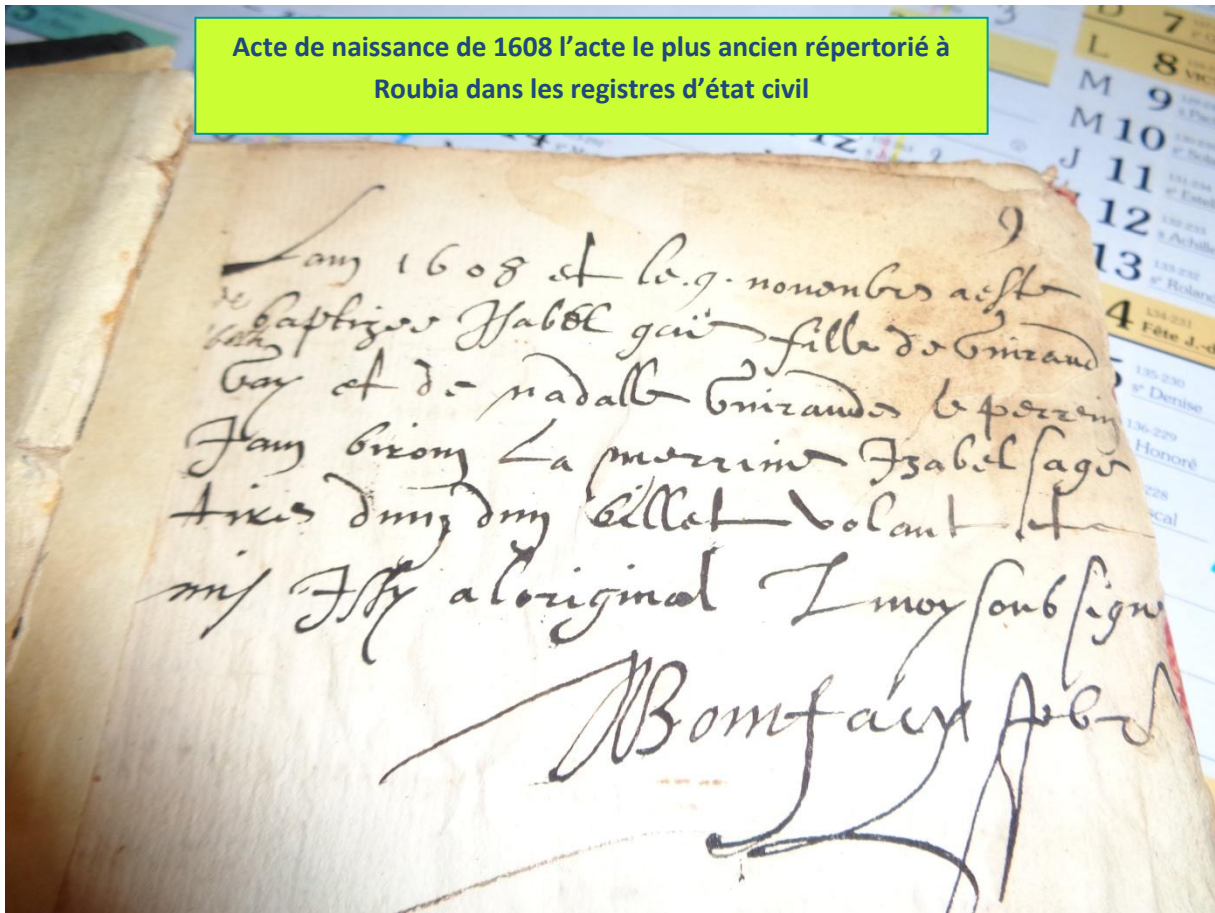 Acte de naissance de 1608 l’acte le plus ancien répertorié à
Roubia dans les registres d’état civil
9
Lan 1608 et le .9. novenbre a este
baptizee Isabel gaïe fille de Guiraud
Gay et de nadalle Guiraude le perrein
Jan biron La merrine Izabel sage
tires dung dung billet volant et
mis Issy a loriginal moy soubsigne
Bomfaix pbre
D 7
L 8
M 9
M 10
J 11
12
13
4 Fête J.-d
Denise
Honoré
14
12
3